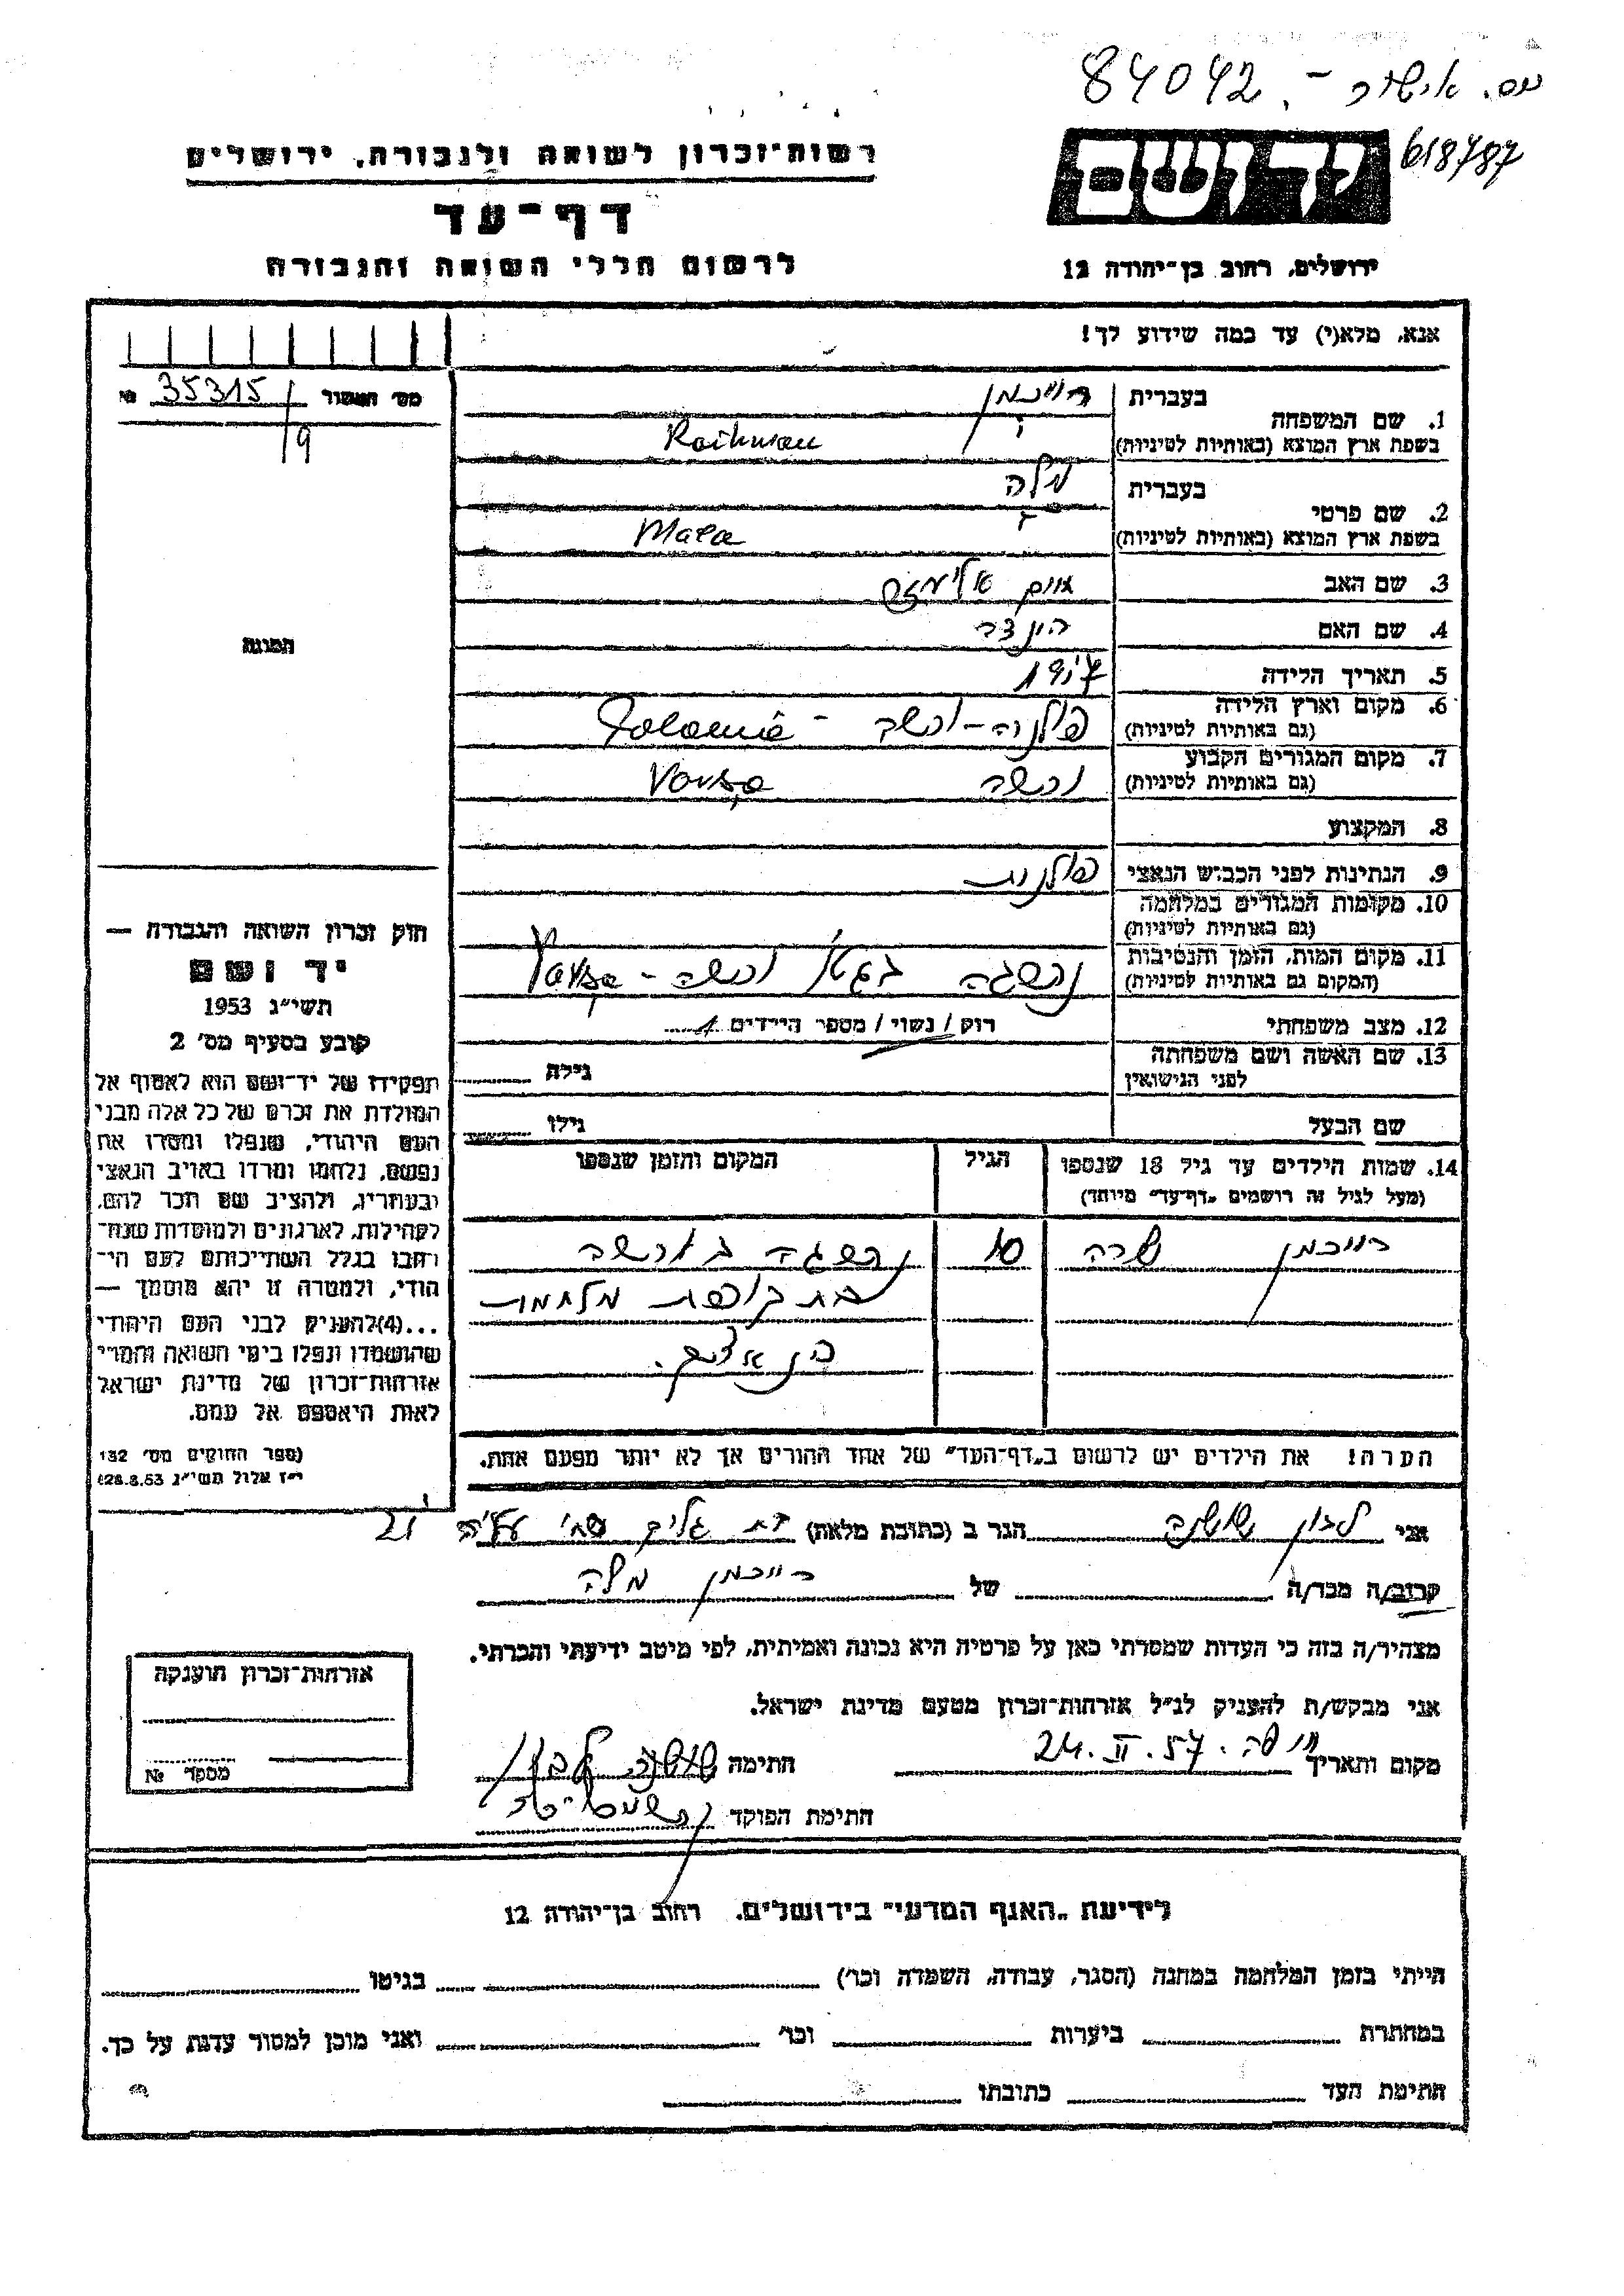 מס. אישור – 84042
618787
יד ושם
רשות-זכרון לשואה ולגבורה, ירושלים
דף-עד
לרשום חללי השואה והגבורה
ירושלים, רחוב בן-יהודה 12
אנא, מלא(י) עד כמה שידוע לך!
1. שם המשפחה
בעברית רייכמן
בשפת ארץ המוצא (באותיות לטיניות) Raihman
2. שם פרטי
בעברית מלה
בשפת ארץ המוצא (באותיות לטיניות) Mala
3. שם האב
4. שם האם הינדה
5. תאריך הלידה
6. מקום וארץ הלידה
(גם באותיות לטיניות) פולניה-ורשה - Polania
7. מקום המגורים הקבוע
(גם באותיות לטיניות) ורשה Varsa
8. המקצוע
9. הנתינות לפני הכבוש הנאצי פולנית
10. מקומות המגורים במלחמה
(גם באותיות לטיניות)
11. מקום המות, הזמן והנסיבות
(המקום גם באותיות לטיניות) נהרגה בגטו ורשה - Varsa
12. מצב משפחתי רווק / נשוי / מספר הילדים 1
13. שם האשה ושם משפחתה
לפני הנישואין
גילה
שם הבעל
גילו
14. שמות הילדים עד גיל 18 שנספו
(מעל לגיל זה רושמים „דף-עד" מיוחד)
הגיל
המקום והזמן שנספו
רייכמן שרה 10 נהרגה בורשה
בתקופת מלחמת
הערה! את הילדים יש לרשום ב„דף-העד" של אחד ההורים אך לא יותר מפעם אחת.
מס' האשור 35315 №
9
תמונה
חוק זכרון השואה והגבורה —
יד ושם
תשי"ג 1953
קובע בסעיף מס' 2
תפקידו של יד-ושם הוא לאסוף אל
המולדת את זכרם של כל אלה מבני
העם היהודי, שנפלו ומסרו את
נפשם, נלחמו ומרדו באויב הנאצי
ובעוזריו, ולהציב שם וזכר להם,
לקהילות, לארגונים ולמוסדות שנח-
רבו בגלל השתייכותם לעם הי-
הודי, ולמטרה זו יהא מוסמך —
...(4)להעניק לבני העם היהודי
שהושמדו ונפלו בימי השואה והמרי
אזרחות-זכרון של מדינת ישראל
לאות היאספם אל עמם.
(ספר החוקים מס' 132
י"ז אלול תשי"ג 28.8.53)
אני לבון שושנה הגר ב (כתובת מלאה) בת גלים 21
קרוב/ה מכר/ה של רייכמן מלה
מצהיר/ה בזה כי העדות שמסרתי כאן על פרטיה היא נכונה ואמיתית, לפי מיטב ידיעתי והכרתי.
אני מבקש/ת להעניק לנ"ל אזרחות-זכרון מטעם מדינת ישראל.
מקום ותאריך חיפה. 24.II.57 חתימה שושנה לבון
חתימת הפוקד
אזרחות-זכרון הוענקה
מספר №
לידיעת „האגף המדעי" בירושלים, רחוב בן-יהודה 12
הייתי בזמן המלחמה במחנה (הסגר, עבודה, השמדה וכו') בגיטו
במחתרת ביערות וכו' ואני מוכן למסור עדות על כך.
חתימת העד כתובתו